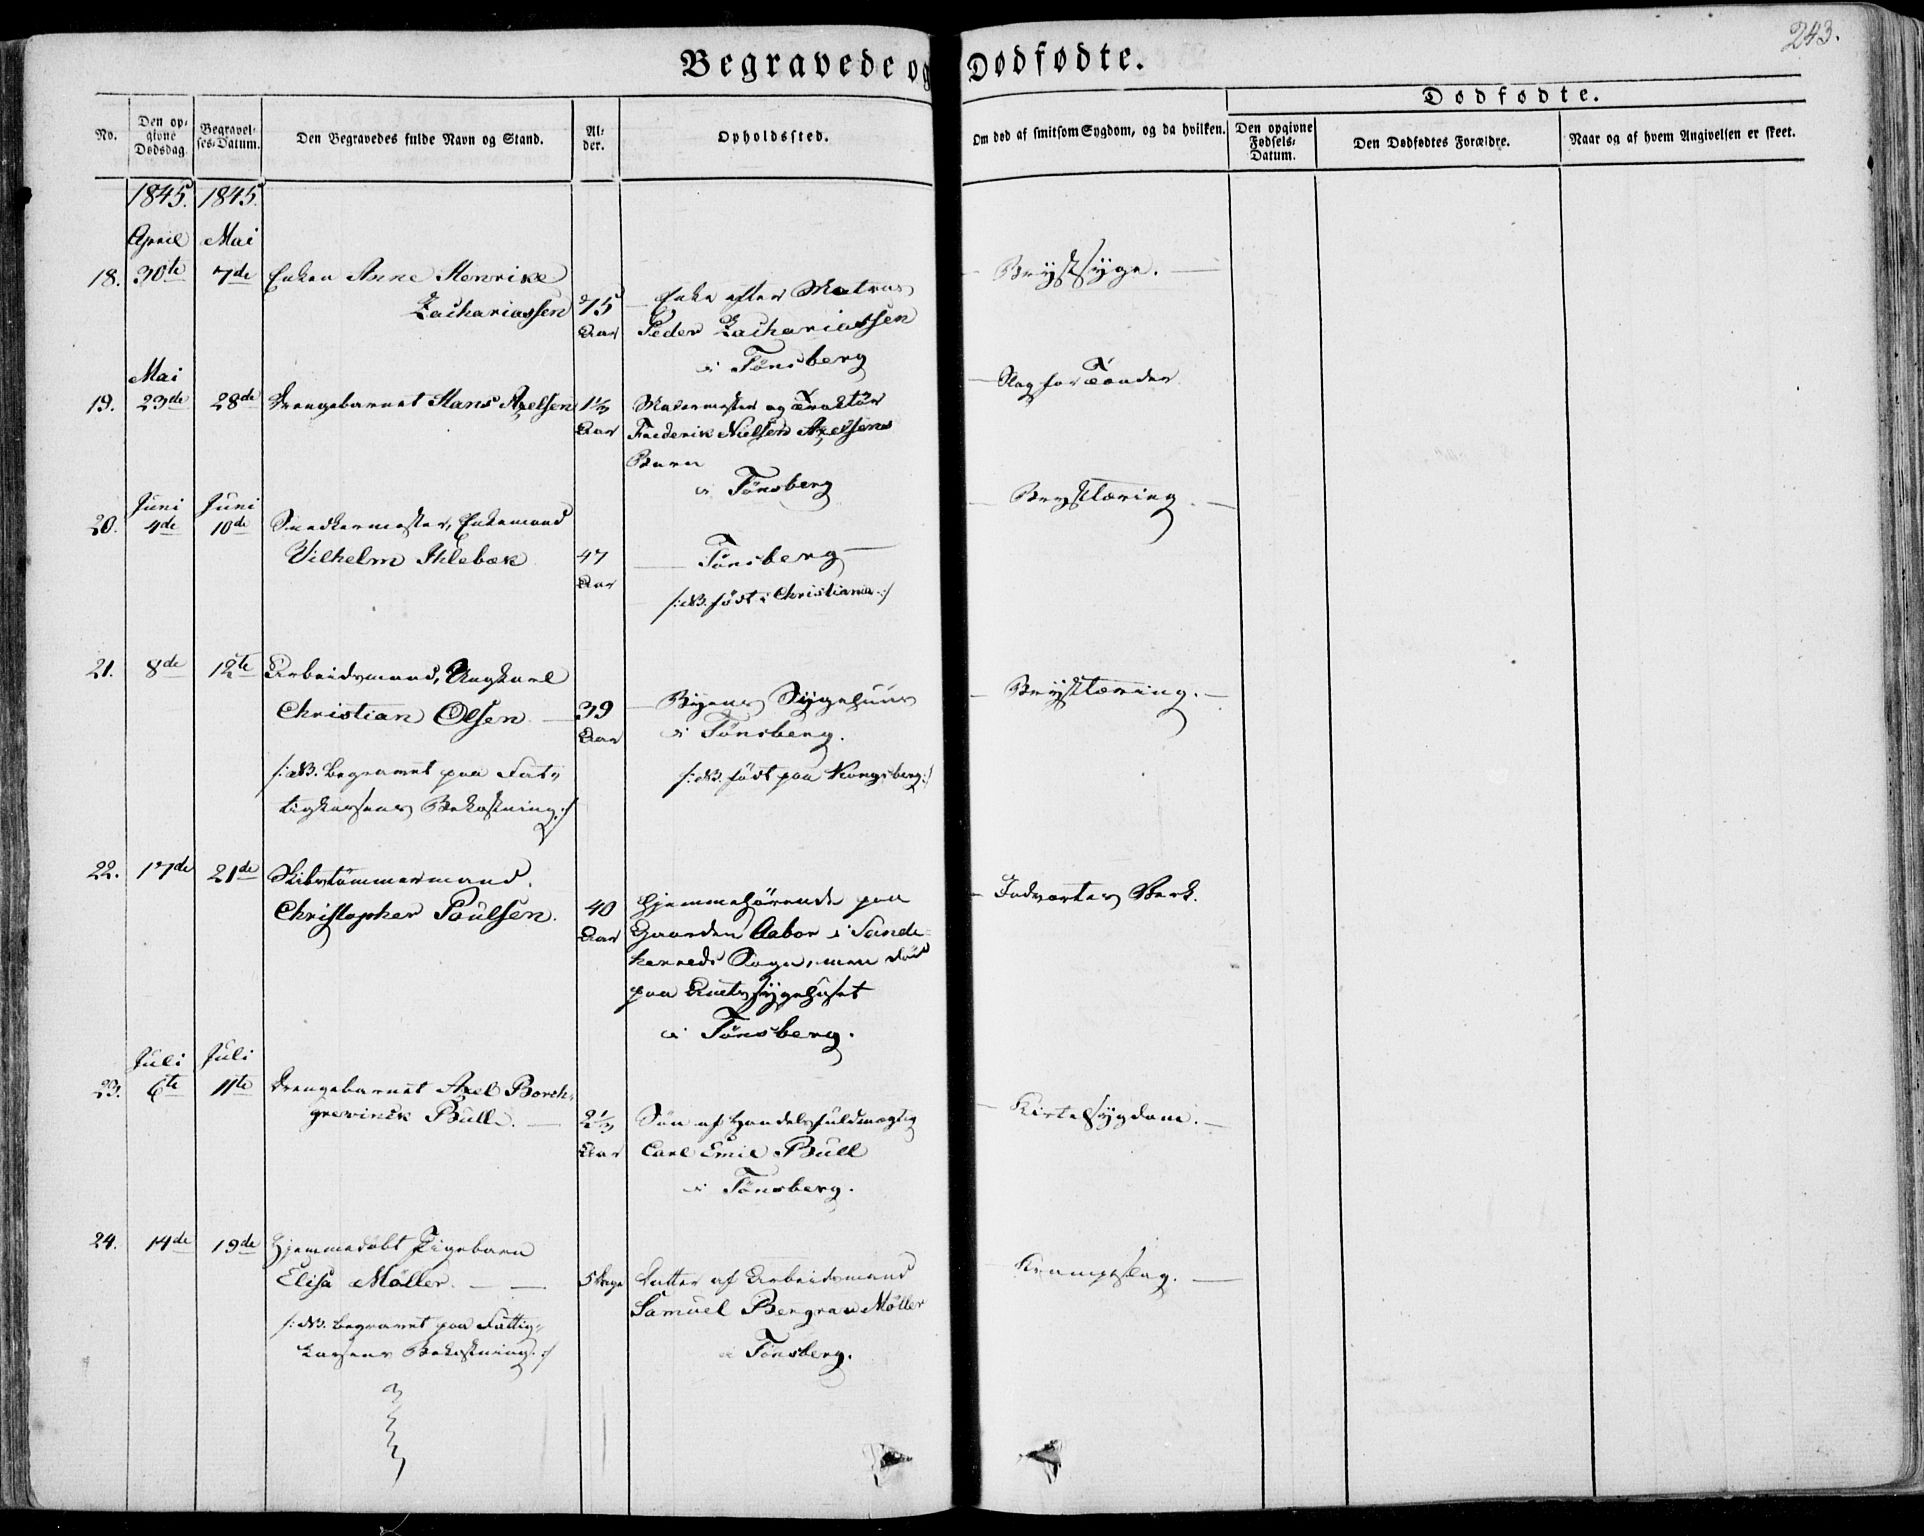 243.
Begravede og Dødfødte.
No.
Den opgivne Dødsdag.
Begravelses-Datum.
Den Begravedes fulde Navn og Stand.
Alder.
Opholdssted.
Om død af smitsom Sygdom, og da hvilken.
Dødfødte.
Den opgivne Fødsels-Datum.
Den Dødfødtes Forældre.
Naar og af hvem Angivelsen er skeet.
1845. 1845.
April Mai
18. 30te 7de Enken Anne Henrike
Zachariassen
75
Aar
Enke efter Matros
Peder Zachariassen
i Tönsberg
Brystsyge.
Mai
19. 23de 28de Drengebarnet Hans Axelsen
1 1/3
Aar
Frederik Nielsen Axelsens
Barn
i Tönsberg
Slag for Tænder
Juni Juni
20. 4de 10de Snedkermester, Enkemand
Vilhelm Ihlebæk
47
Aar
Tönsberg
/: NB. födt i Christiania :/
Brysttæring
21. 8de 12te Arbeidsmand, Ungkarl
Christian Olsen
/: NB. begravet paa Fat-
tigkassens Bekostning :/
39
Aar
Byens Sygehuus
i Tönsberg.
/: NB. födt paa Kongsberg :/
Brysttæring.
22. 17de 21de Skibstömmermand.
Christopher Poulsen.
40
Aar
Hjemmehörende paa
Gaarden Aabor i Sande-
herreds Sogn, men död
paa Amtssygehuset
i Tönsberg.
Indvortes Værk.
Juli Juli
23. 6te 11te Drengebarnet Axel Borch-
grevinck Bull.
2 1/3
Aar
Sön af Handelsfuldmægtig
Carl Emil Bull
i Tönsberg.
Kirtelsygdom.
24. 14de 19de Hjemmedöbt Pigebarn
Elisa Möller.
/: NB. begravet paa Fattig-
kassens Bekostning :/
5 Dage
Datter af Arbeidsmand
Samuel Bergrav Möller
i Tönsberg.
Krampeslag.